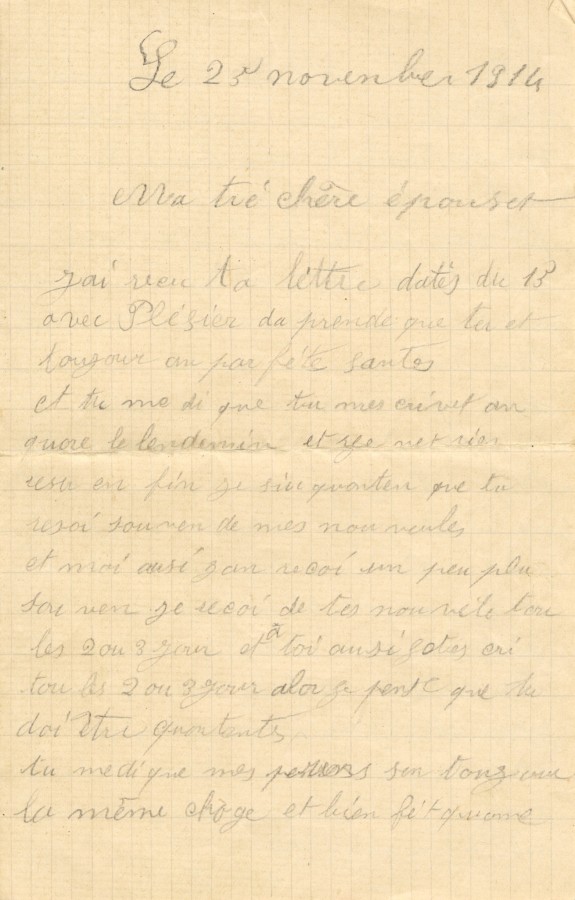 Le 25 novenber 1914
Ma tré chère épouset
J'ai recu ta lettre datés du 13
avec Plésier da prende que tu et
tougour an parféte santes
et tu me di que tu mes crivet an
quore le lendemin et ge net rien
resu en fin je sui quonten que tu
resoi souven de mes nouveules
et moi ausi jan recoi un peu plu
souven je recoi de tes nouvéle tou
les 2 ou 3 jour et a toi ausi getes cri
tou les 2 ou 3 jour alor je pense que tu
doi être quontente
tu me di que mes parens son tougour
la même choge et bien fét quome